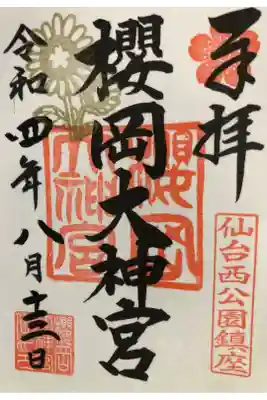 奉拝
仙台西公園鎮座
櫻岡大神宮
櫻岡大神宮
令和四年八月十三日